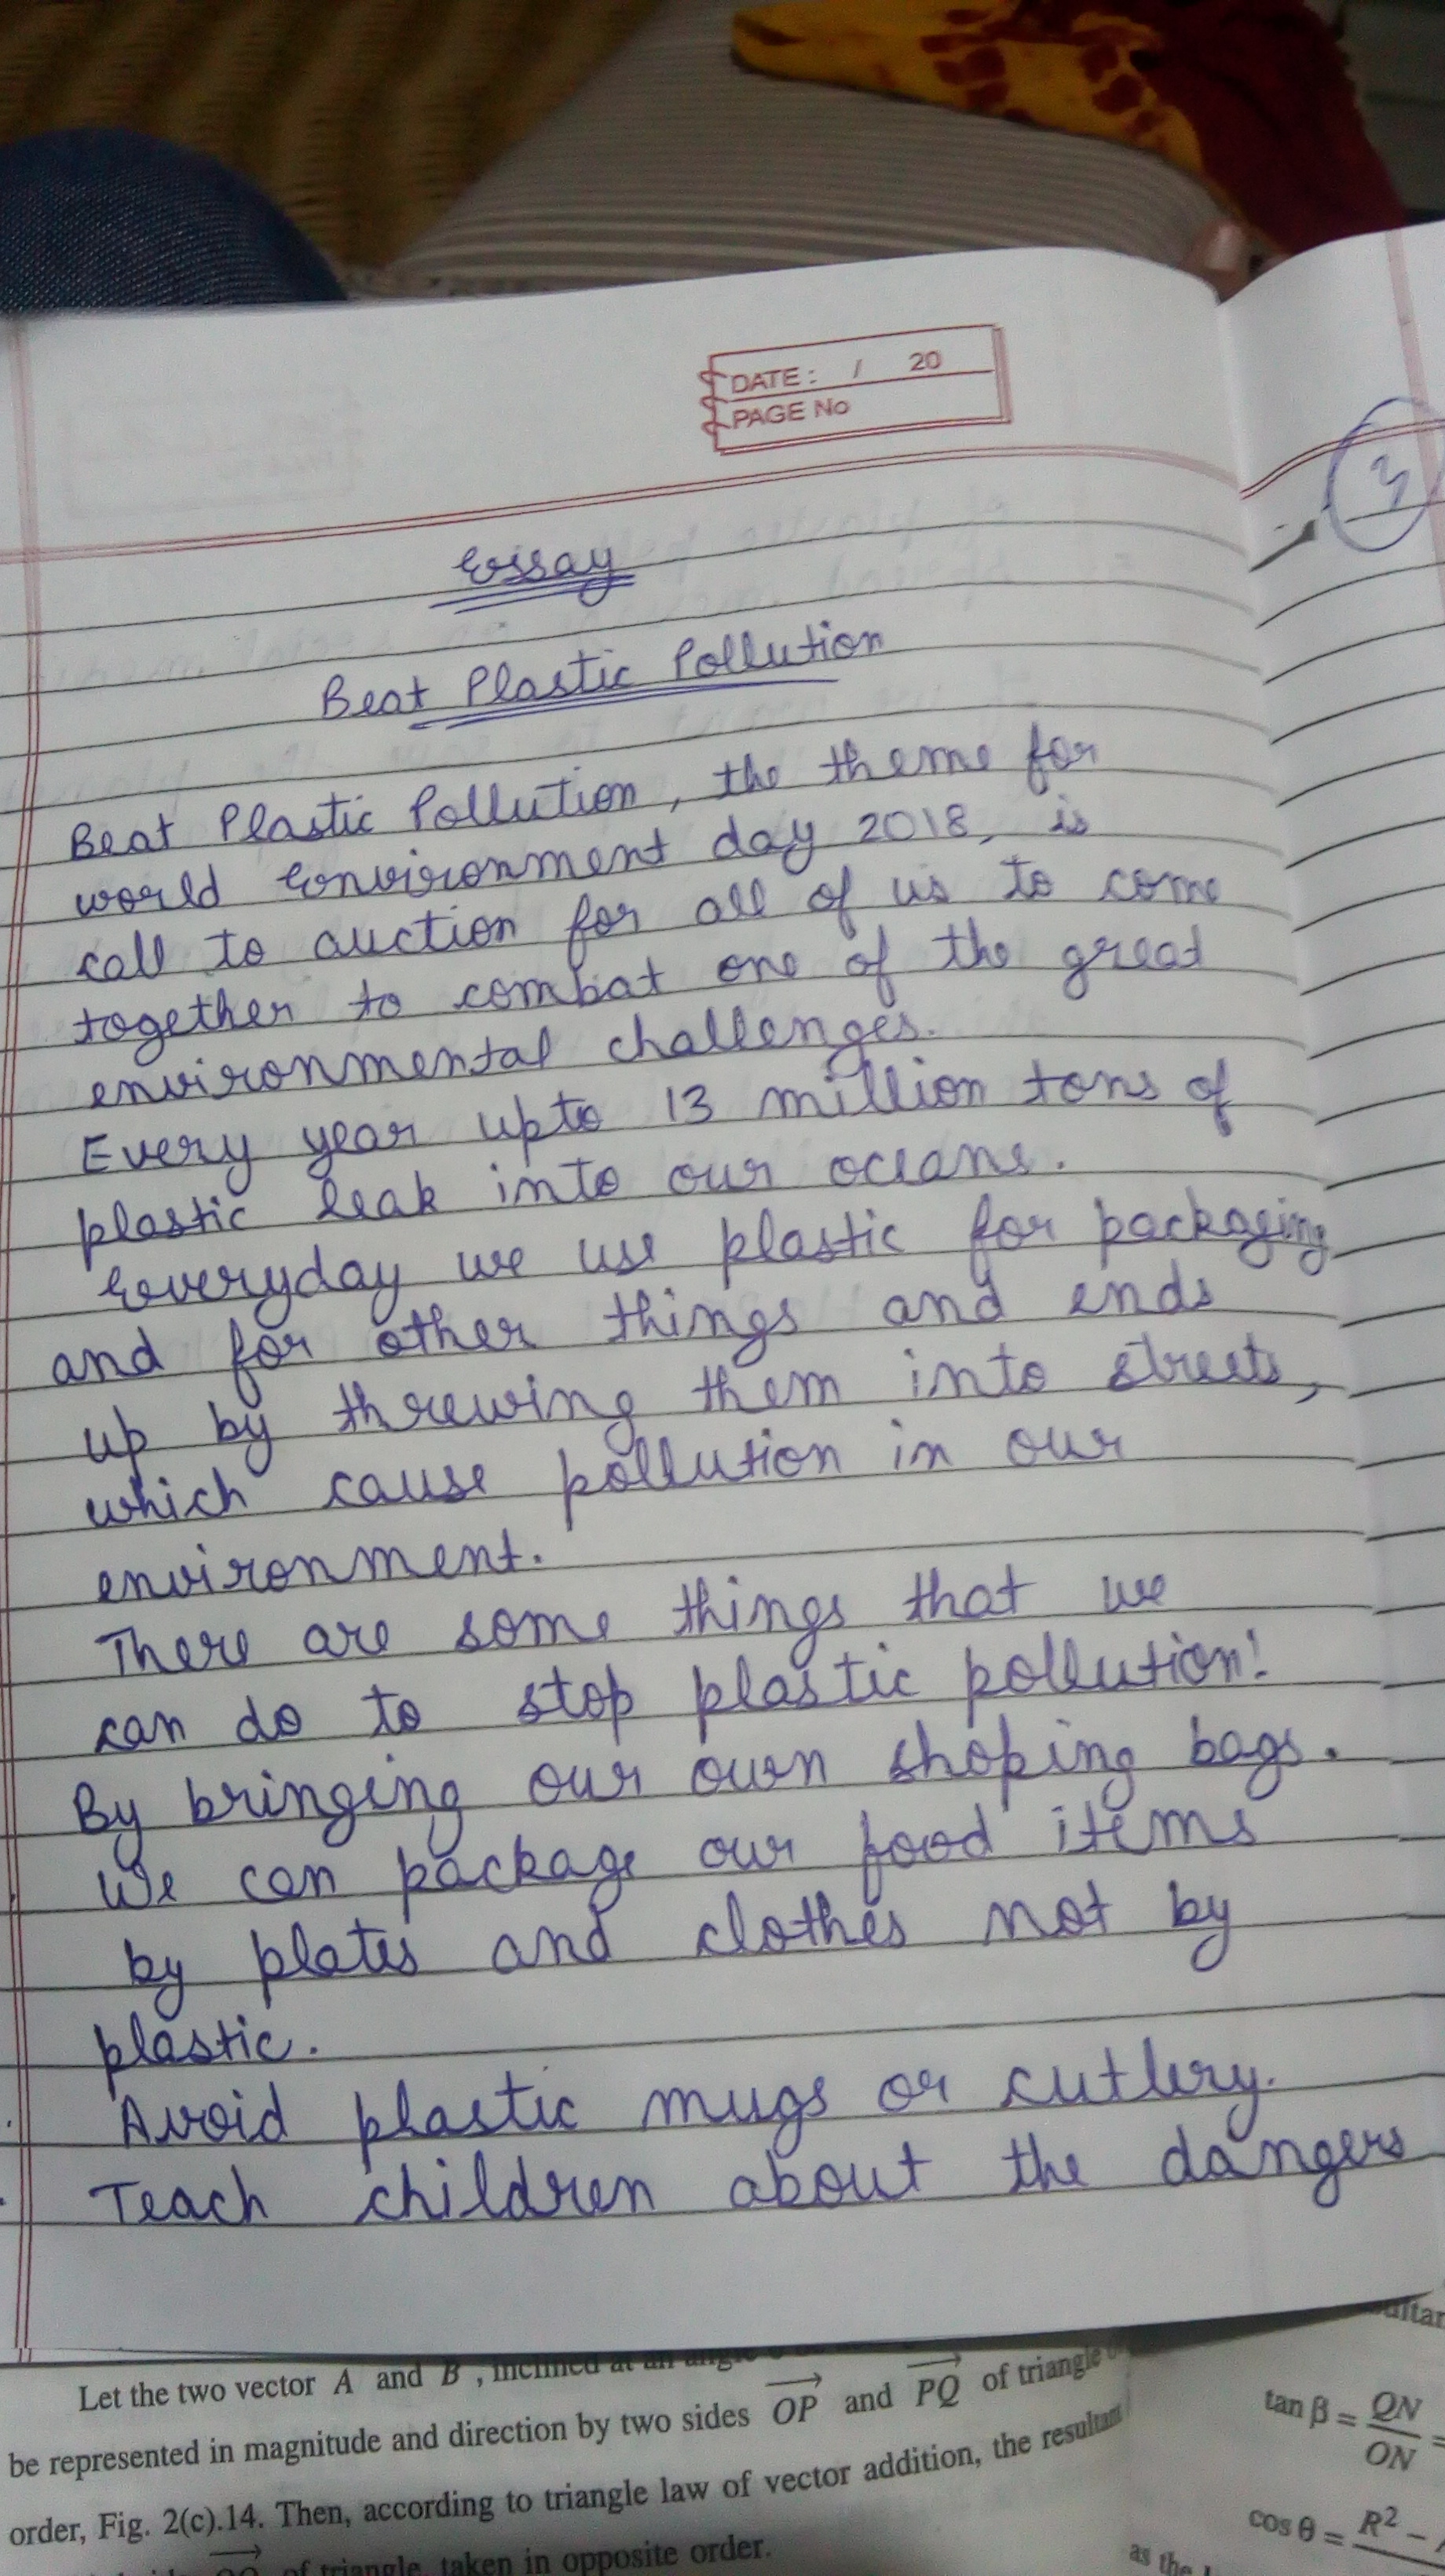 DATE: / 20
PAGE No
3
Essay
Beat Plastic Pollution
Beat Plastic Pollution, the theme for
world Environment day 2018, is
call to auction for all of us to come
together to combat one of the great
environmental challenges.
Every year upto 13 million tons of
plastic leak into our oceans.
Everyday we use plastic for packaging
and for other things and ends
up by threwing them into streets,
which cause pollution in our
environment.
There are some things that we
can do to stop plastic pollution!
By bringing our own shoping bags.
We can package our food items
by plates and clothes not by
plastic.
Avoid plastic mugs or cutlery.
Teach children about the dangers
Let the two vector A and B, inclined at an angle
be represented in magnitude and direction by two sides OP and PQ of triangle
order, Fig. 2(c).14. Then, according to triangle law of vector addition, the resultant
of triangle, taken in opposite order.
tan β = QN/ON =
cos θ = R² −
as the